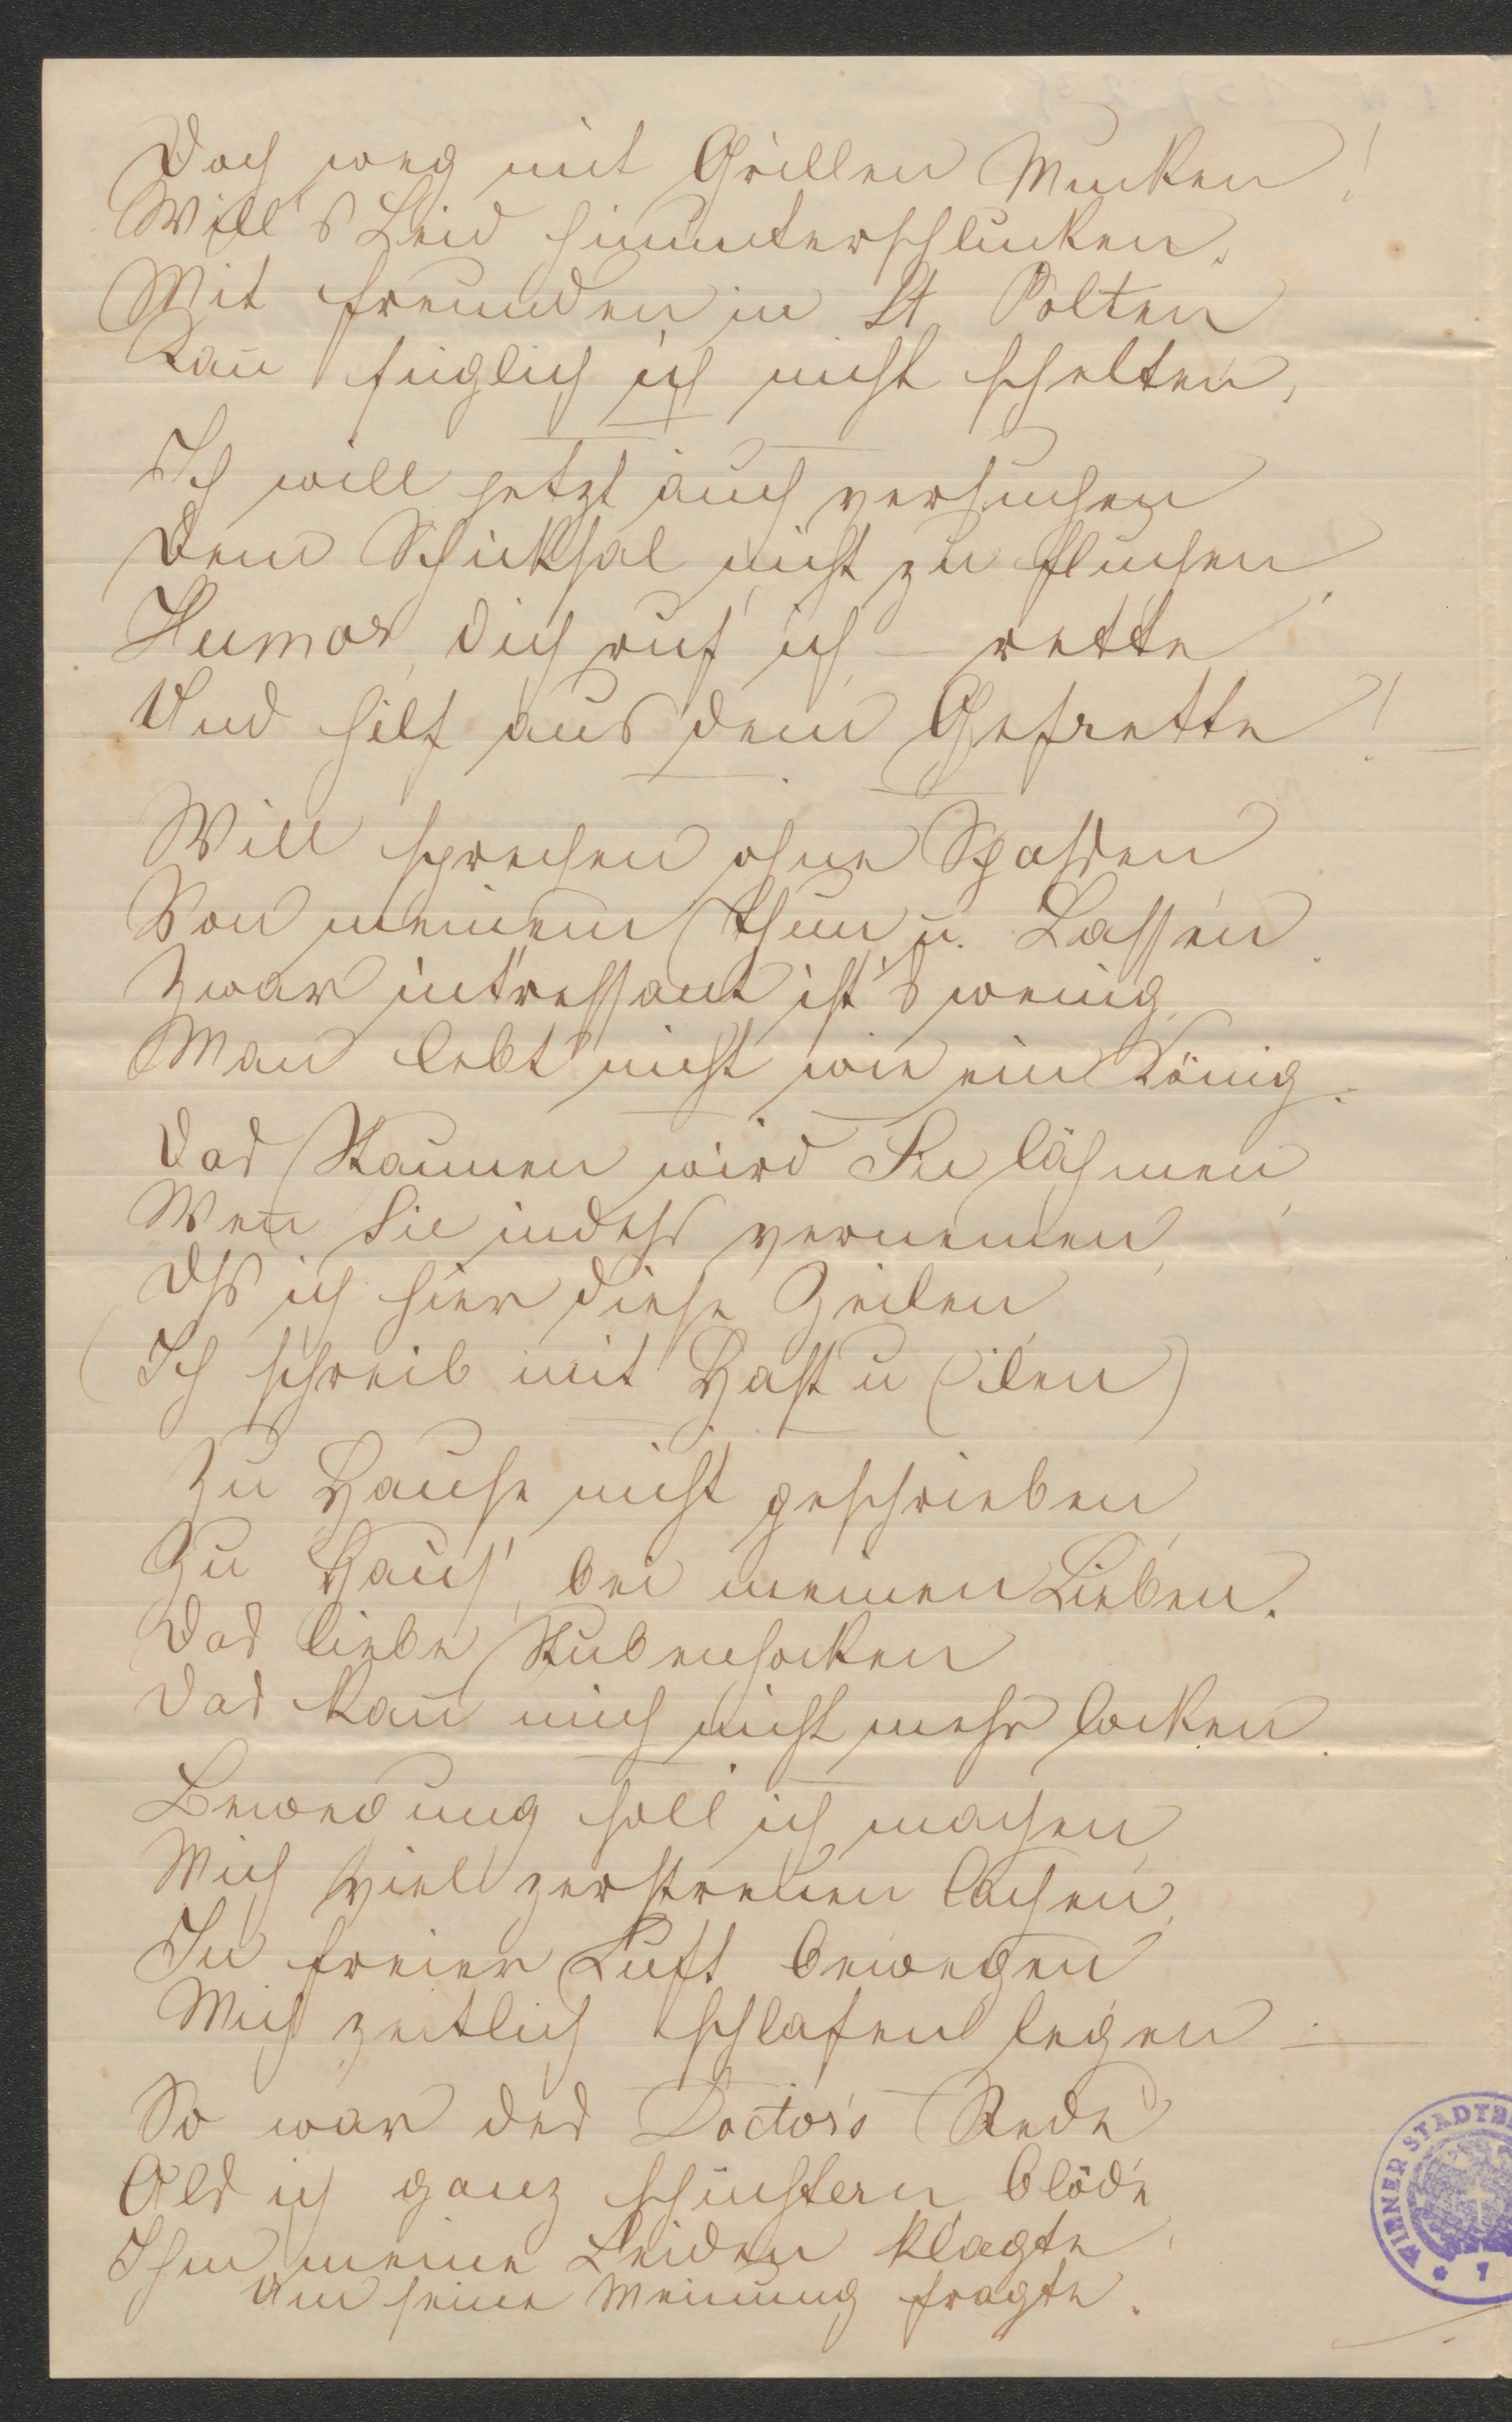 Doch weg mit Grillen Mucken!
Will's Leid hinunterschlucken.
Mit Freunden in St Pölten
Kan̄ füglich ich nicht schelten,
Ich will jetzt auch versuchen
Dem Schicksal nicht zu fluchen,
Humor, dich ruf' ich – rette
Und hilf aus dem Gefrette! –
Will sprechen ohne Spassen
Von meinem Thun u. Lassen.
Zwar int'ressant ist's wenig,
Man lebt nicht wie ein König.
Das Staunen wird Sie lähmen,
Wen̄ Sie indess vernemen,
Dss ich hier diese Zeilen
(Ich schreib mit Hast u Eilen)
Zu Hause nicht geschrieben,
Zu Haus', bei meinen Lieben.
Das liebe Stubenhocken
Das kan̄ mich nicht mehr locken.
Bewegung soll ich machen,
Mich viel zerstreuen lachen,
In freier Luft bewegen
Mich zeitlich schlafen legen. –
So war des Doctor's Rede
Als ich ganz schüchtern blöde
Ihm meine Leiden klagte,
Um seine Meinung fragte.
WIENER STADTB
* 1